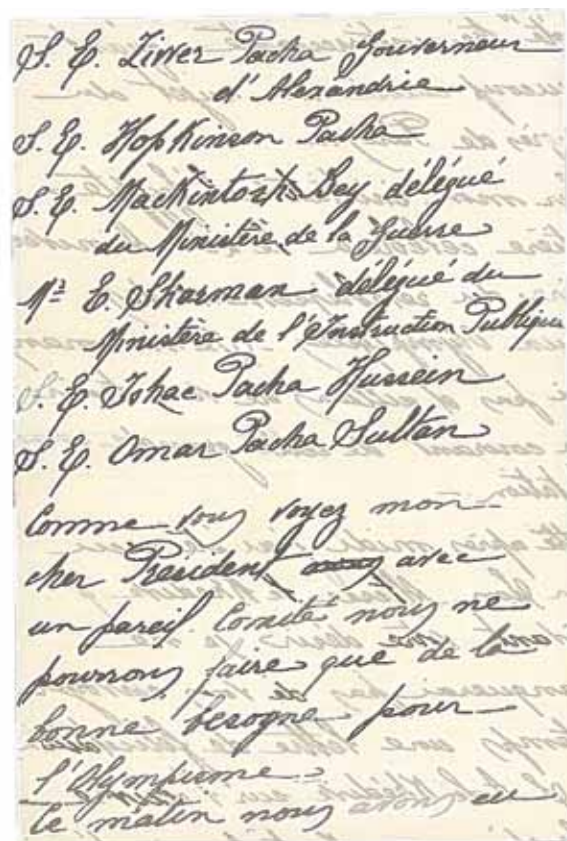 S. E. Ziwer Pacha Gouverneur
d'Alexandrie
S. E. Hopkinson Pacha
S. E. Mackintosh Bey délégué
du Ministère de la Guerre
Mr E. Sharman délégué du
Ministère de l'Instruction Publique
S. E. Ishac Pacha Hussein
S. E. Omar Pacha Sultan
Comme vous voyez mon
cher President avec
un pareil Comité nous ne
pourrons faire que de la
bonne besogne pour
l'Olympisme
Ce matin nous avons eu